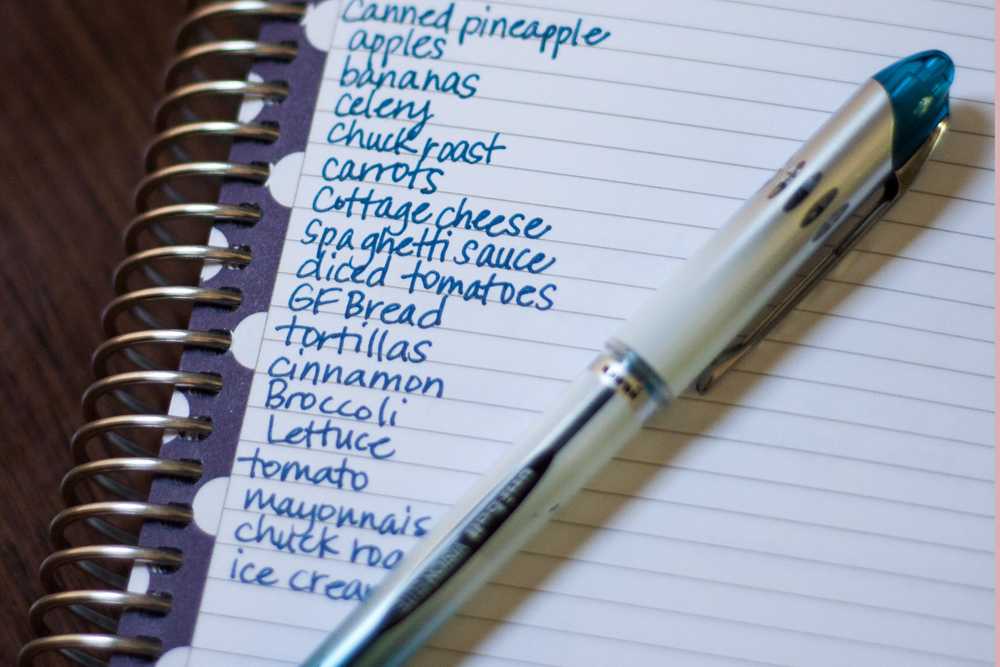 Canned pineapple
apples
bananas
celery
chuck roast
carrots
Cottage cheese
spaghetti sauce
diced tomatoes
GF Bread
tortillas
cinnamon
Broccoli
Lettuce
tomato
mayonnais
chuck roa
ice crea